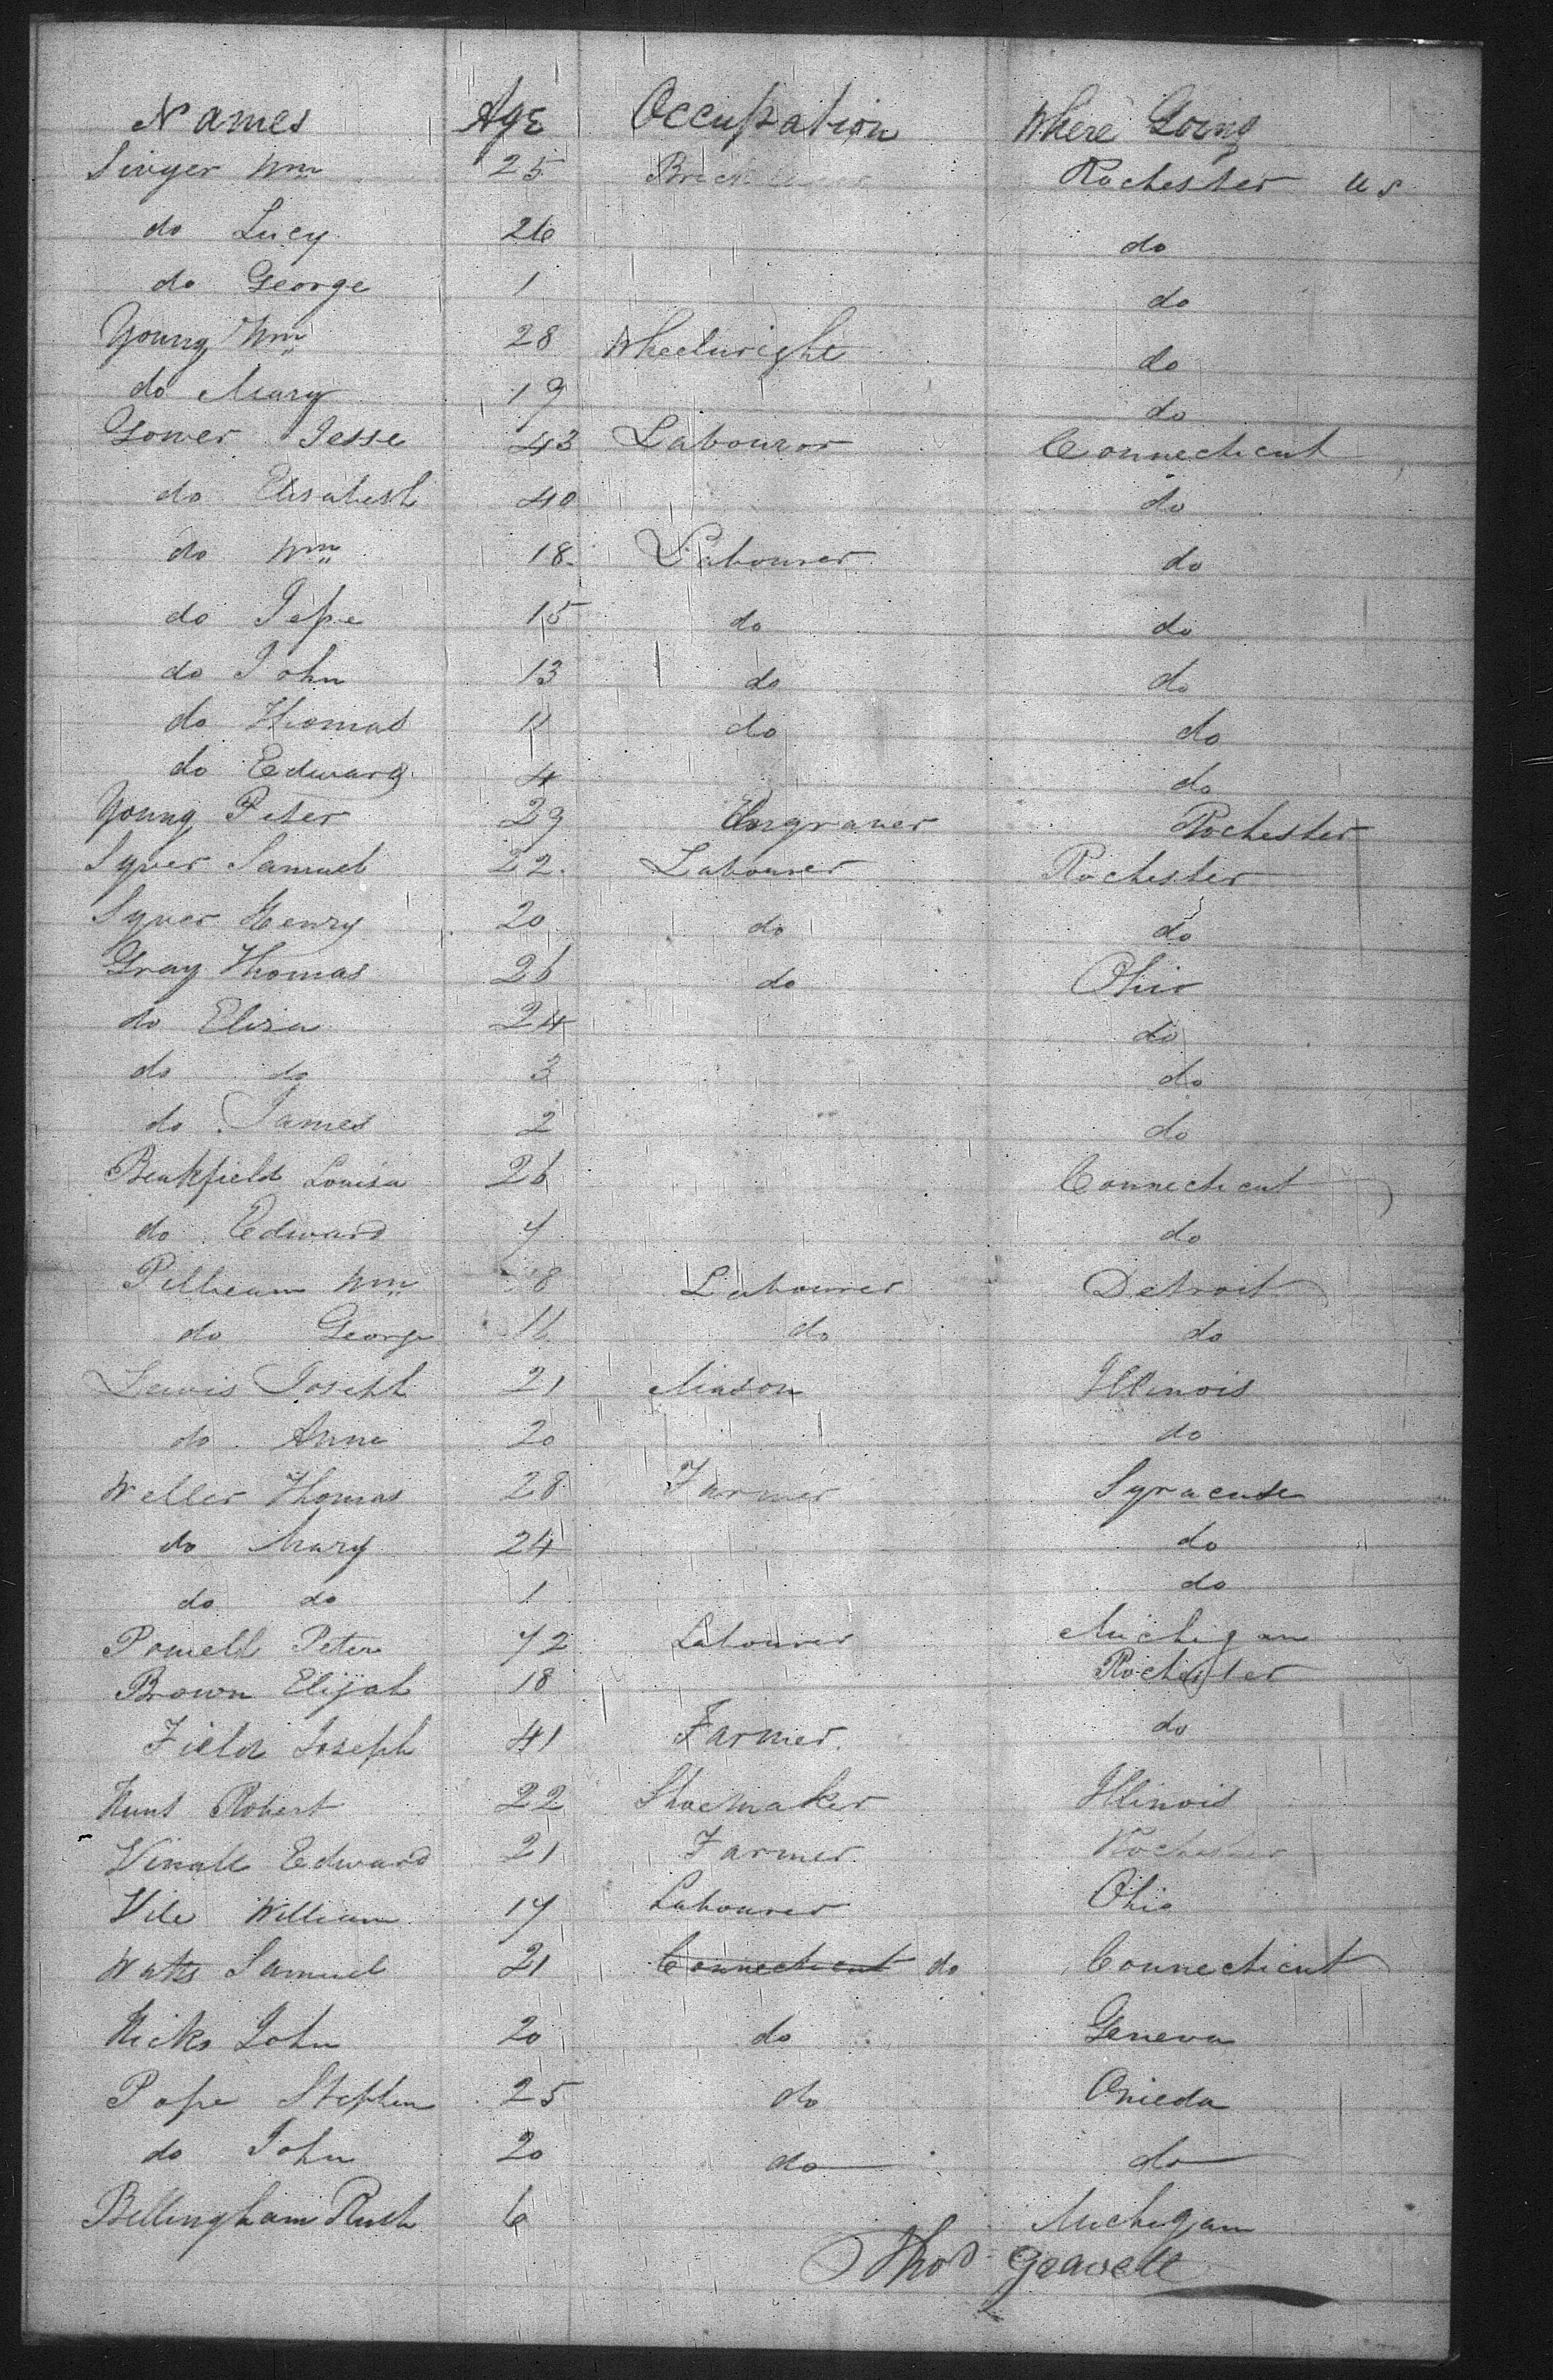 Names Age Occupation Where Going
Singer Wm 25 Rochester U S
do Lucy 26 do
do George 1 do
Young Wm 28 Wheelwright do
do Mary 19 do
Gower Jesse 43 Labouror Connecticut
do Elisabeth 40 do
do Wm 18 Labourer do
do Jesse 15 do do
do John 13 do do
do Thomas 11 do do
do Edward 4 do
Young Peter 29 Engraver Rochester
Syver Samuel 22 Labourer Rochester
Syver Henry 20 do do
Gray Thomas 26 do Ohio
do Eliza 24 do
do do 3 do
do James 2 do
Louisa 26 Connecticut
do Edward 7 do
Wm Labourer Detroit
do George 16 do do
Lewis Joseph 21 Mason Illinois
do Anne 20 do
Weller Thomas 28 Farmer Syracuse
do Mary 24 do
do do 1 do
Peter 42 Labourer Michigan
Brown Elijah 18 Rochester
Field Joseph 41 Farmer do
Hunt Robert 22 Shoemaker Illinois
Vinall Edward 21 Farmer Rochester
Vile William 17 Labourer Ohio
Watts Samuel 21 Connecticut do Connecticut
Hicks John 20 do Geneva
Pope Stephen 25 do Onieda
do John 20 do do
Bellingham Ruth 6 Michigan
Thos Geavell